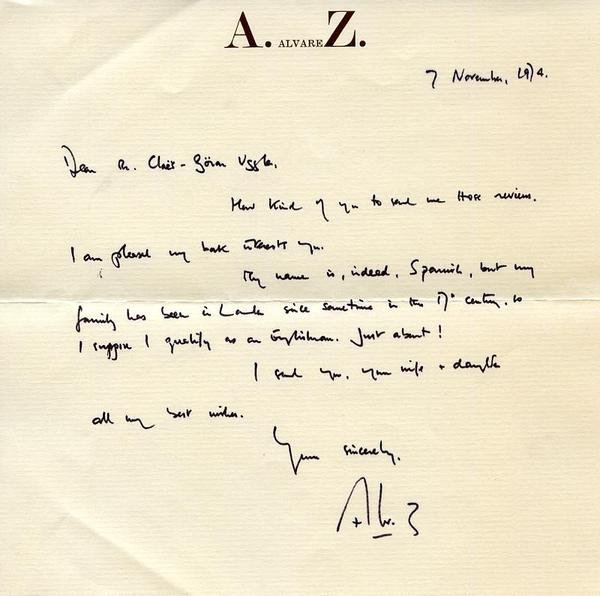 A. ALVAREZ.
7 November, 1974.
Dear Mr. Claës-Göran Uggla,
How kind of you to send me those reviews.
I am pleased my book interests you.
My name is, indeed, Spanish, but my
family has been in London since sometime in the 17th century, so
I suppose I qualify as an Englishman. Just about!
I send you, your wife + daughter
all my best wishes.
Yours sincerely,